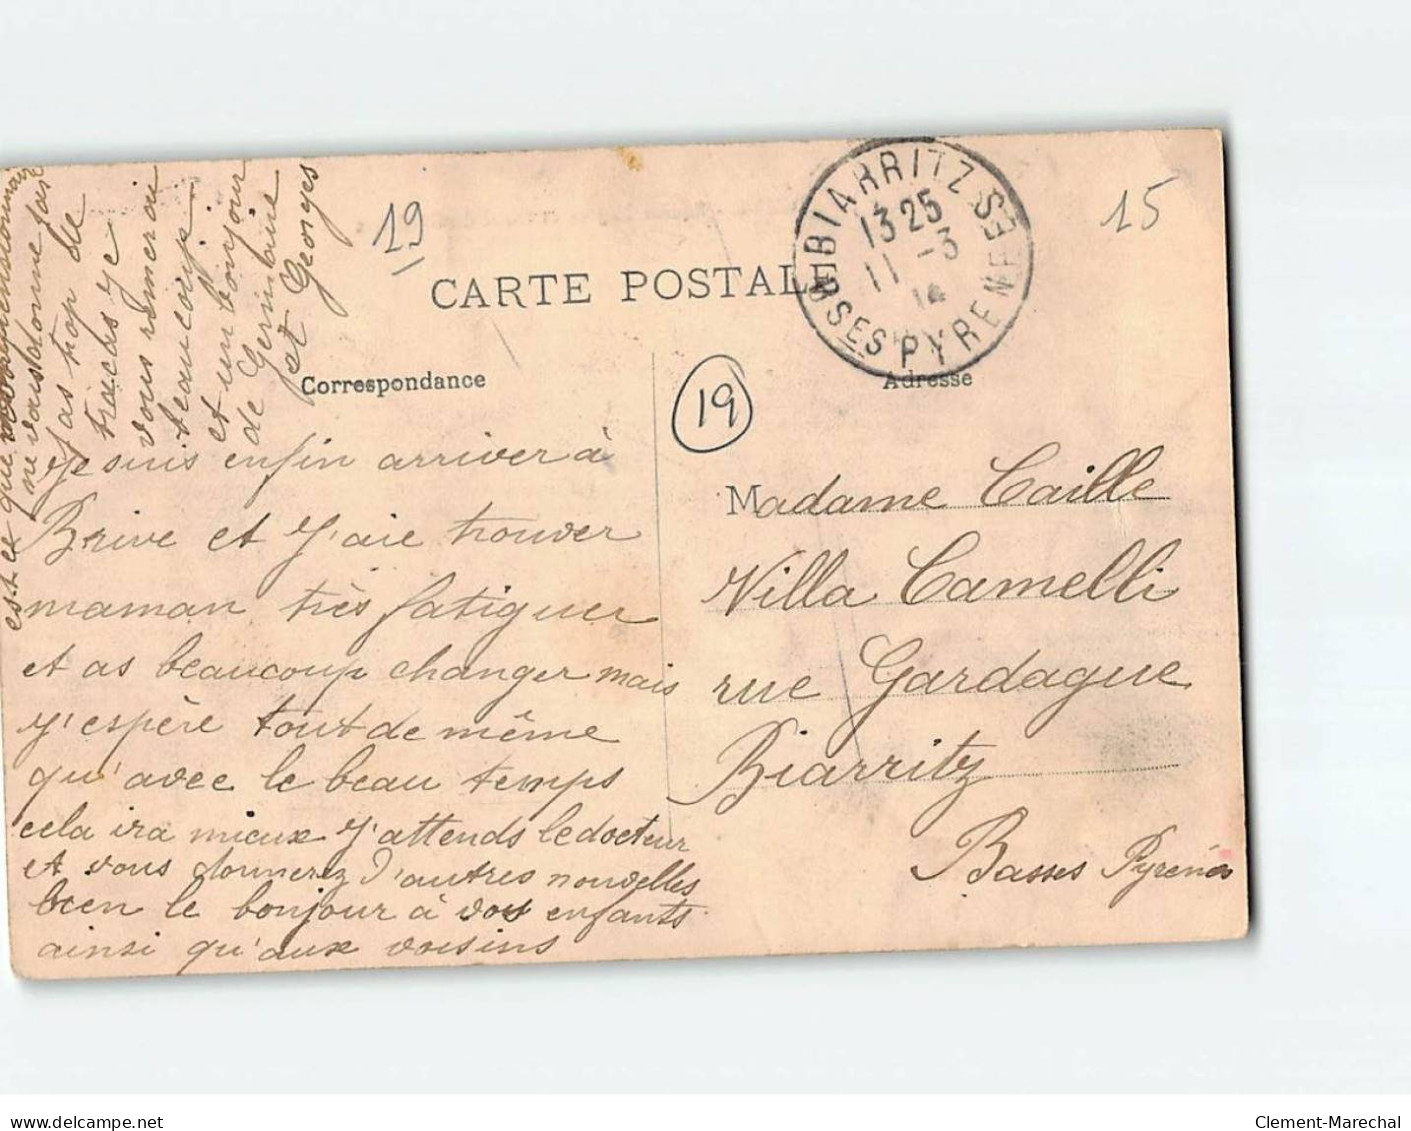 19
CARTE POSTALE
BIARRITZ BSES PYRENEES
13 25
11 -3
14
15
Correspondance
Adresse
19
Je suis enfin arriver à
Brive et j'aie trouver
maman très fatiguer
et as beaucoup changer mais
j'espère tout de même
qu'avec le beau temps
cela ira mieux j'attends le docteur
et vous donnerez d'autres nouvelles
bien le bonjour à vos enfants
ainsi qu'aux voisins
est ce que
ne vous donne fait
pas trop de
tracks je
vous remerai
beaucoup
et un bonjour
de Germaine
et Georges
Madame Caille
Villa Camelli
rue Gardague
Biarritz
Basses Pyrénées
delcampe.net
Clement-Marechal